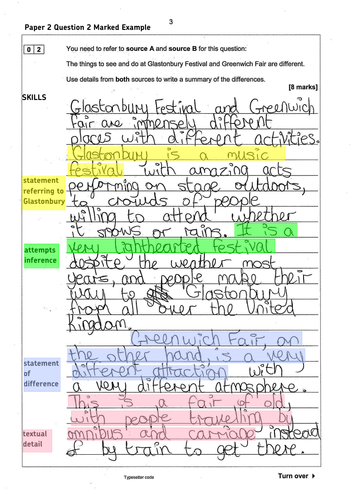 3
Paper 2 Question 2 Marked Example
0 2 You need to refer to source A and source B for this question:
The things to see and do at Glastonbury Festival and Greenwich Fair are different.
Use details from both sources to write a summary of the differences.
[8 marks]
SKILLS
Glastonbury Festival and Greenwich
Fair are immensely different
places with different activities.
Glastonbury is a music
festival with amazing acts
statement referring to Glastonbury
performing on stage outdoors,
to crowds of people
willing to attend whether
it snows or rains. It is a
attempts inference
very lighthearted festival
despite the weather most
years, and people make their
way to Glastonbury
from all over the United
Kingdom.
Greenwich Fair, on
the other hand, is a very
statement of difference
different attraction with
a very different atmosphere.
This is a fair of old,
with people travelling by
textual detail
omnibus and carriage instead
of by train to get there.
Typesetter code
Turn over